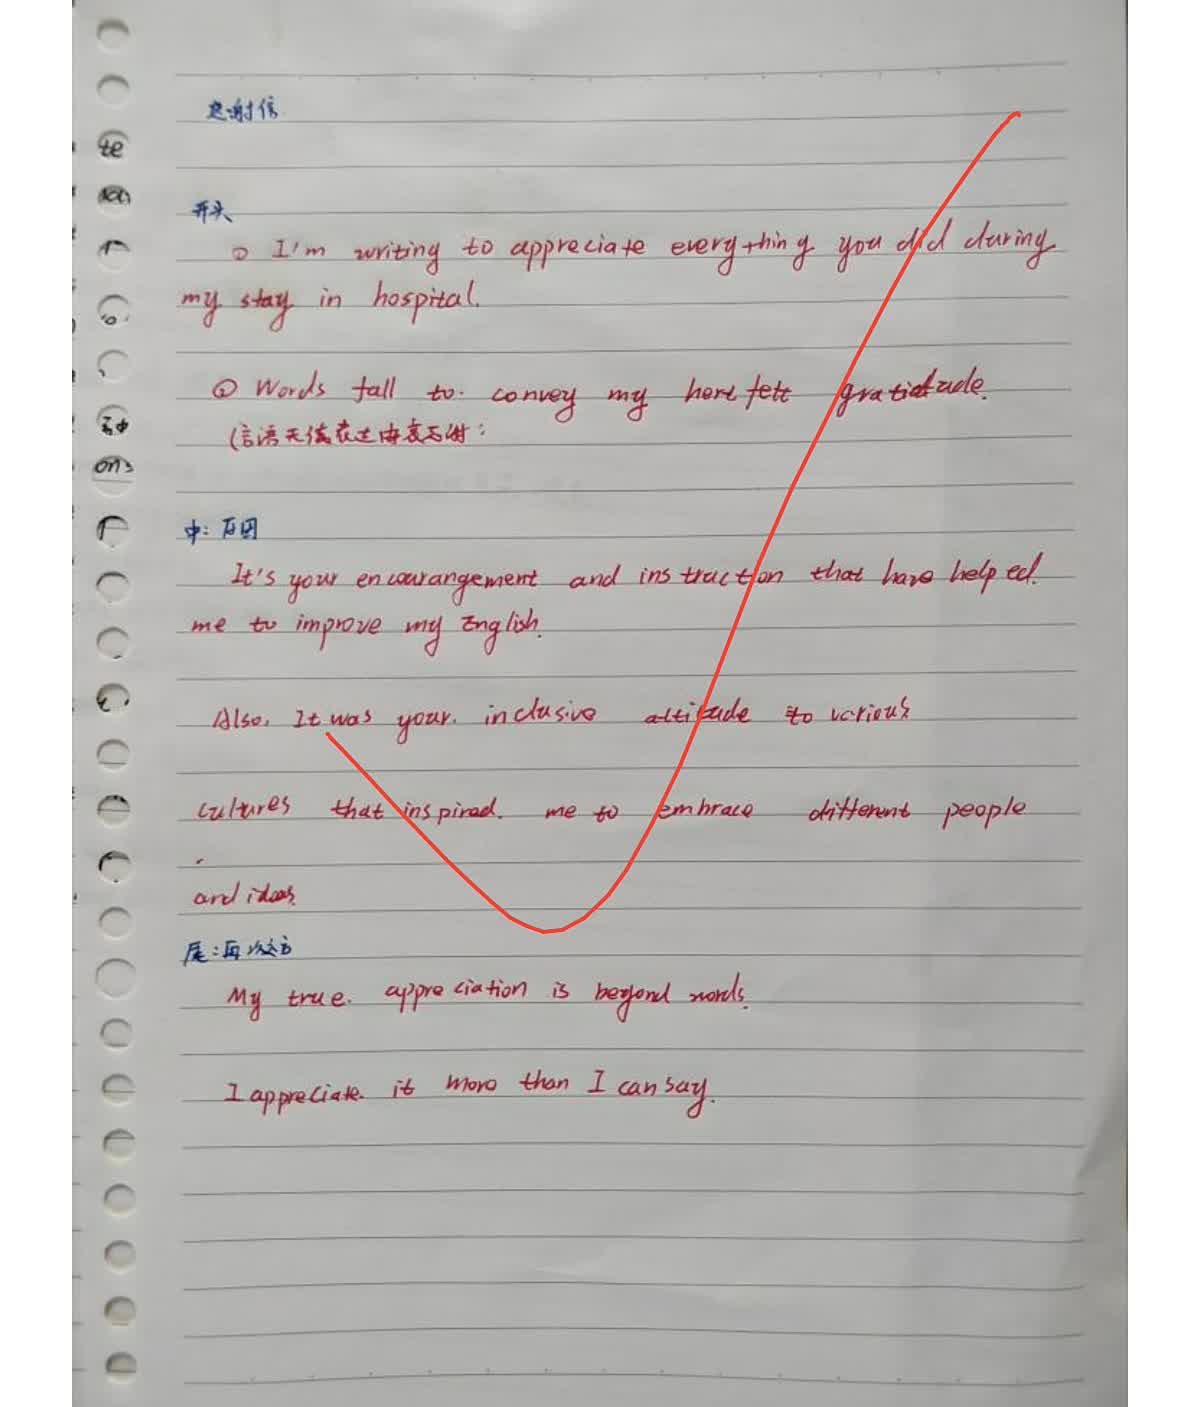 感谢信
开头
① I'm writing to appreciate everything you did during
my stay in hospital.
② Words fall to convey my hertfelt gratitude.
(言语无法表达由衷感谢:
中: 原因
It's your encourangement and instruction that have helped.
me to improve my English.
Also, It was your inclusive attitude to various
cultures that inspired me to embrace different people
and ideas.
尾: 再次
My true appreciation is beyond words.
I appreciate it more than I can say.
te
ons